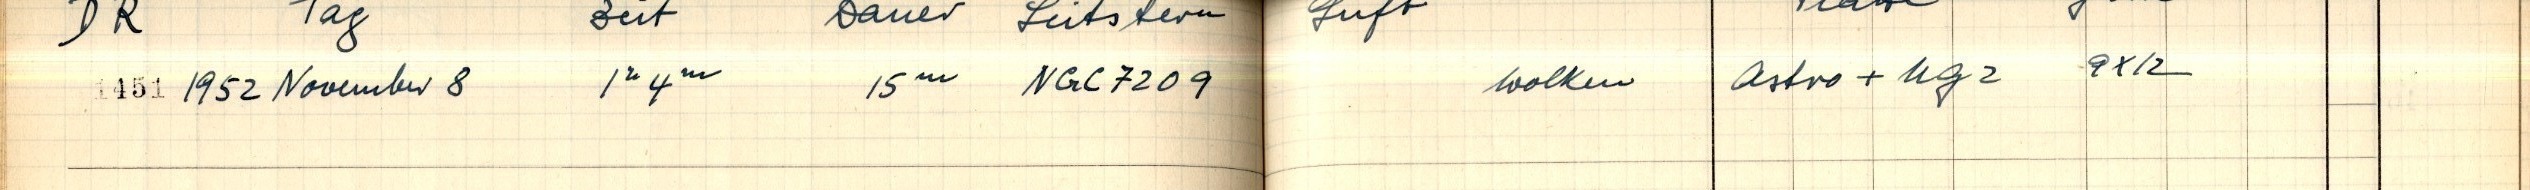 DR Tag Zeit Dauer Leitstern Luft Platte
1451 1952 November 8 1h 4m 15m NGC 7209 Wolken Astro + UG2 9x12